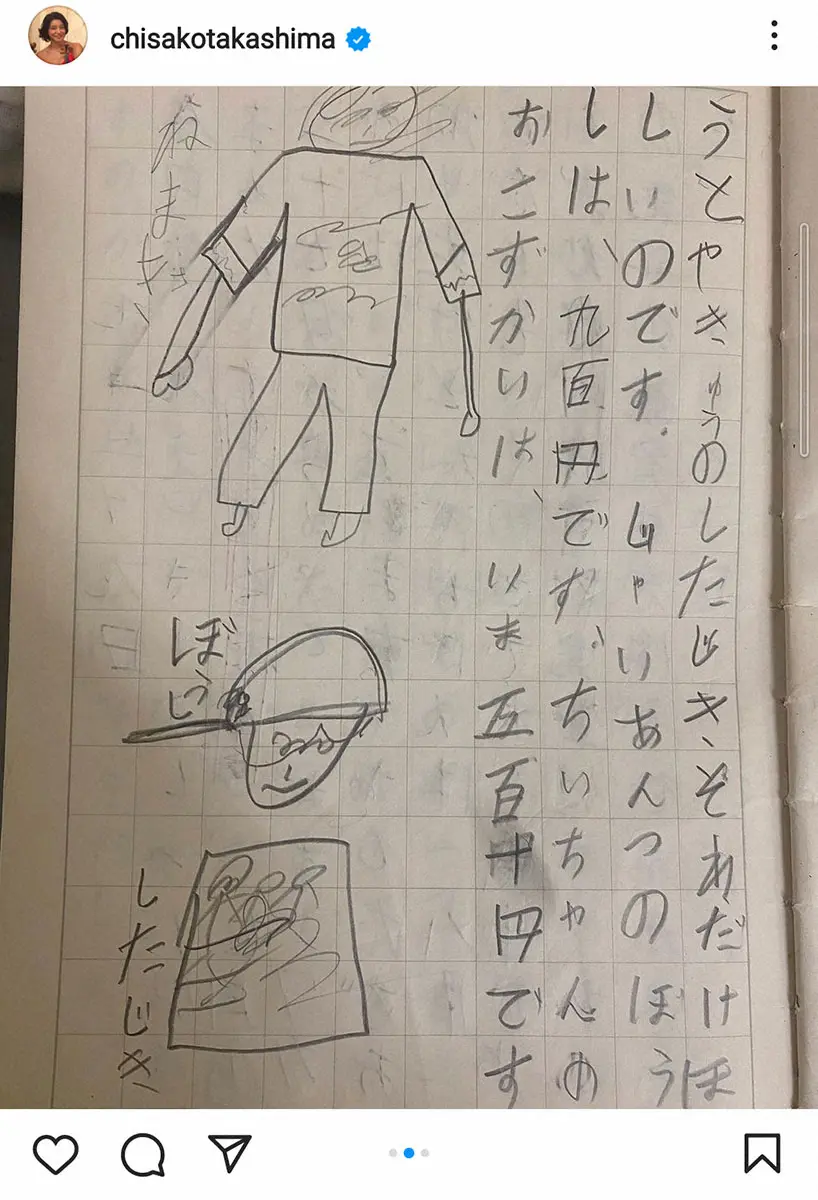 chisakotakashima
うとやきゅうのしたじき、それだけほ
しいのです。じゃいあんつのぼう
しは、九百円です。ちいちゃんの
おこずかいは、いま五百十円です
ねまき、
ぼうし
したじき